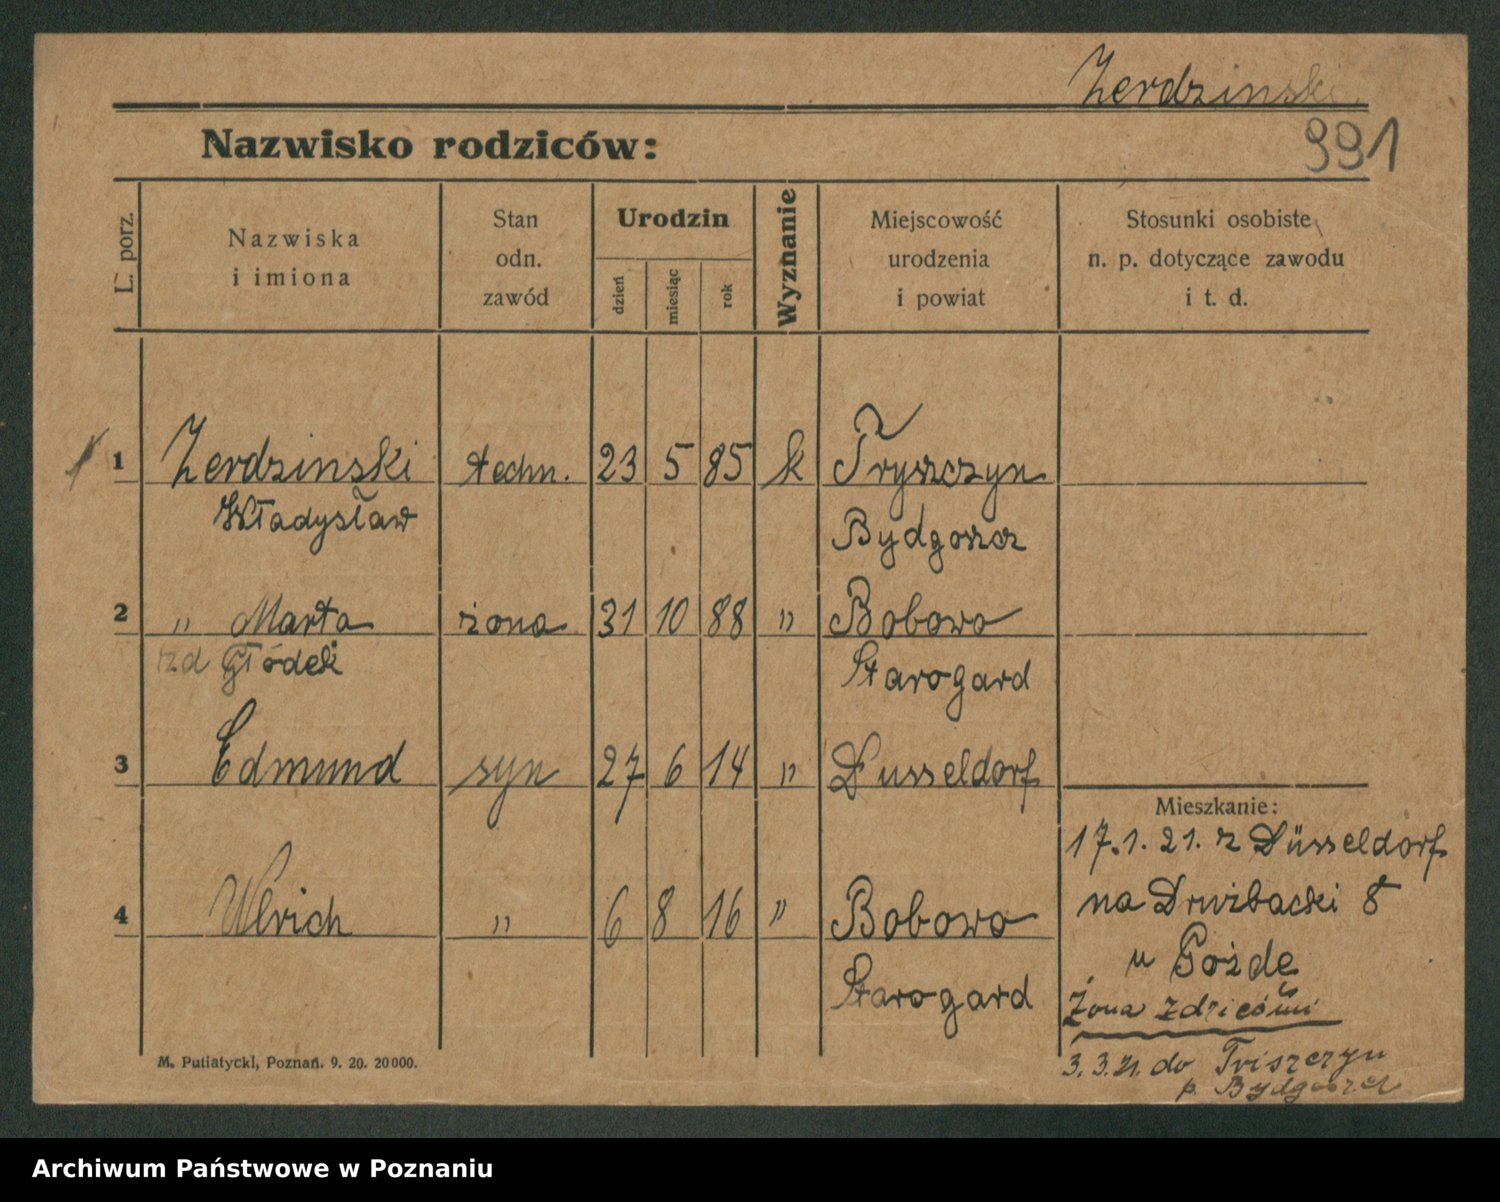 Zerdzinski
991
Nazwisko rodziców:
L. porz.
Nazwiska
i imiona
Stan
odn.
zawód
Urodzin
dzień
miesiąc
rok
Wyznanie
Miejscowość
urodzenia
i powiat
Stosunki osobiste
n. p. dotyczące zawodu
i t. d.
1 Zerdzinski techn. 23 5 85 k Tryszczyn
Władysław Bydgoszcz
2 " Marta żona 31 10 88 " Bobowo
zd Głódek Starogard
3 Edmund syn 27 6 14 " Dusseldorf
Mieszkanie:
17.1.21. z Düsseldorf
4 Ulrich " 6 8 16 " Bobowo
na Drużbacki 8
Starogard
u Gożde
Żona z dziećmi
3.3.21. do Triszczyn
p. Bydgoszcz
M. Putiatycki, Poznań. 9. 20. 20000.
Archiwum Państwowe w Poznaniu